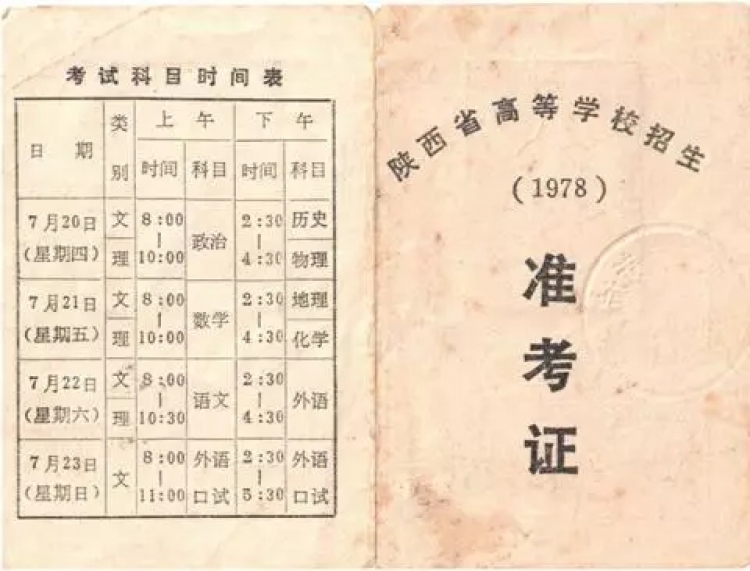 考试科目时间表
日期 类别 上午 下午
时间 科目 时间 科目
7月20日 文 8:00 政治 2:30 历史
(星期四) 理 10:00 4:30 物理
7月21日 文 8:00 数学 2:30 地理
(星期五) 理 10:00 4:30 化学
7月22日 文 8:00 语文 2:30 外语
(星期六) 理 10:30 4:30
7月23日 文 8:00 外语 2:30 外语
(星期日) 11:00 口试 5:30 口试
陕西省高等学校招生
(1978)
准考证